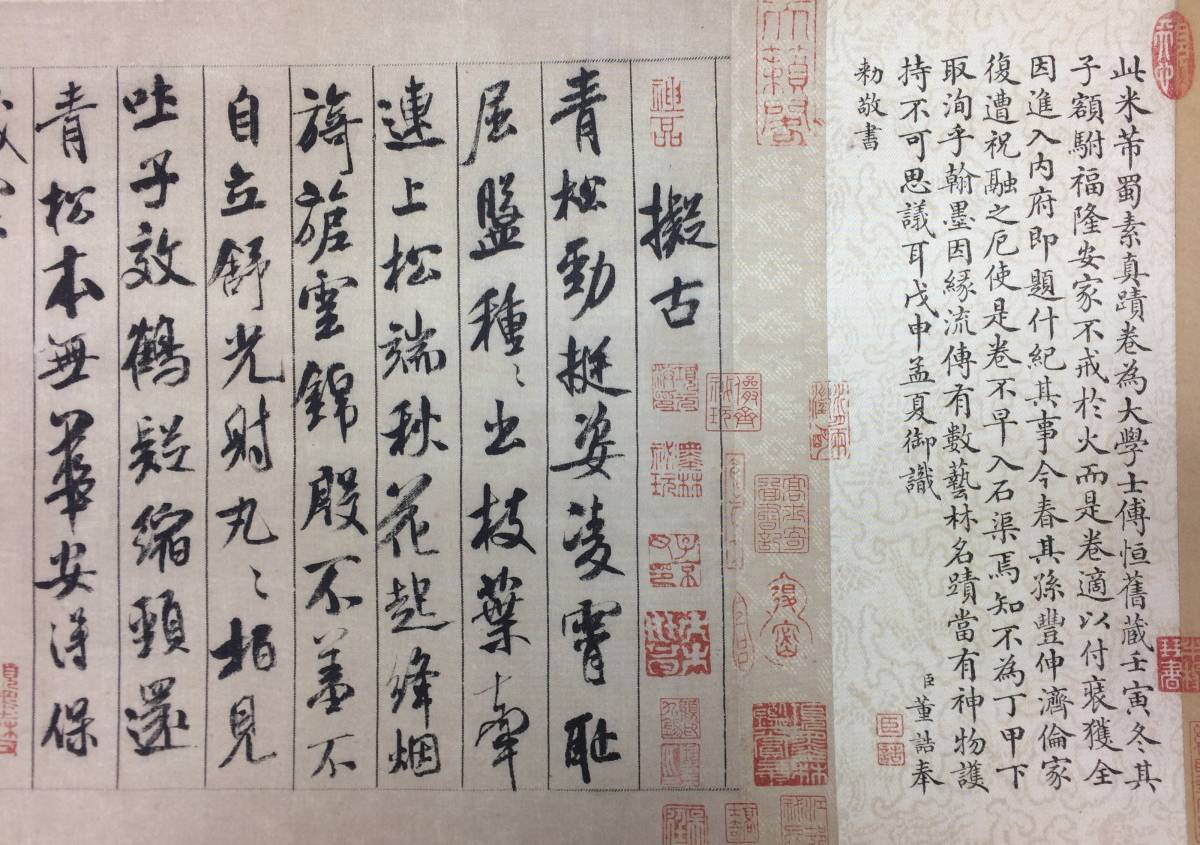 此米芾蜀素真蹟卷為大學士傅恒舊藏壬寅冬其
子額駙福隆安家不戒於火而是卷適以付裝獲全
因進入內府即題什紀其事今春其孫豐伸濟倫家
復遭祝融之厄使是卷不早入石渠焉知不為丁甲下
取洵乎翰墨因緣流傳有數藝林名蹟當有神物護
持不可思議耳戊申孟夏御識
臣董誥奉
勑敬書
神品
擬古
青松勁挺姿凌霄恥
屈盤種種出枝葉牽
連上松端秋花起絳烟
旖旎雲錦殷不羞不
自立舒光射丸丸柏見
吐子效鶴疑縮頸還
青松本無華安得保